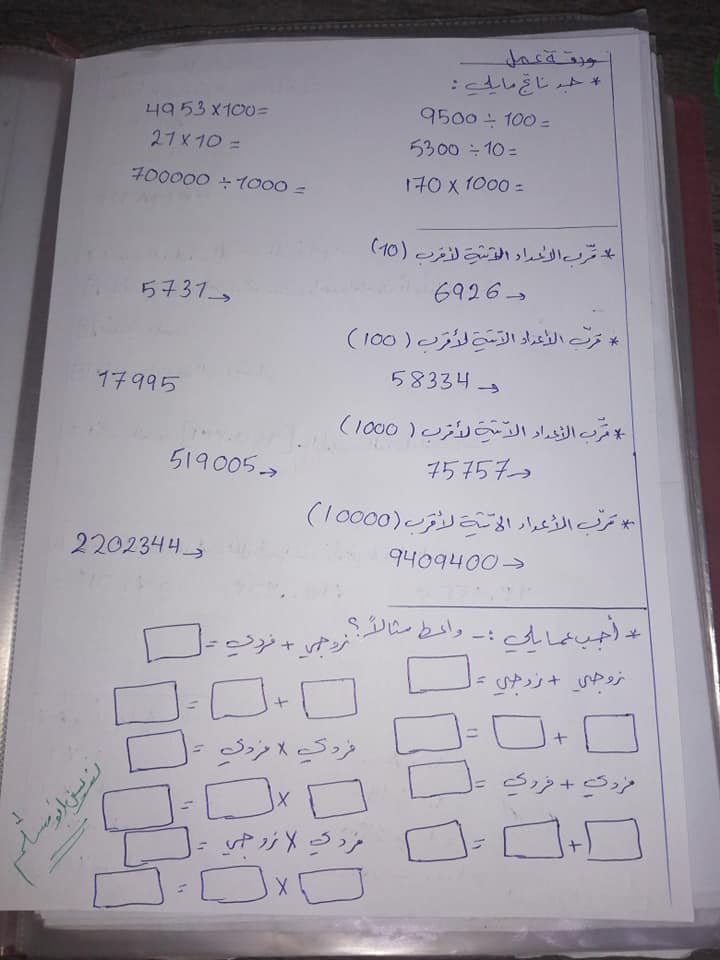 ورقة عمل
* جد ناتج مايلي :
9500 ÷ 100 =    4953 × 100 =
5300 ÷ 10 =    27 × 10 =
170 × 1000 =    700000 ÷ 1000 =
* قرّب الأعداد الآتية لأقرب (10)
6926 →    5731 →
* قرّب الأعداد الآتية لأقرب (100)
58334 →    17995
* قرّب الأعداد الآتية لأقرب (1000)
75757 →    519005 →
* قرّب الأعداد الآتية لأقرب (10000)
9409400 →    2202344 →
* أجب عما يلي :- واعط مثالاً ؟
زوجي + زوجي =    زوجي + فردي =
+ =    + =
فردي + فردي =    فردي × فردي =
+ =    × =
فردي × زوجي =
× =